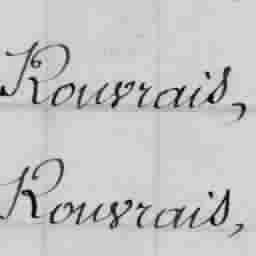 Rouvrais,
Rouvrais,